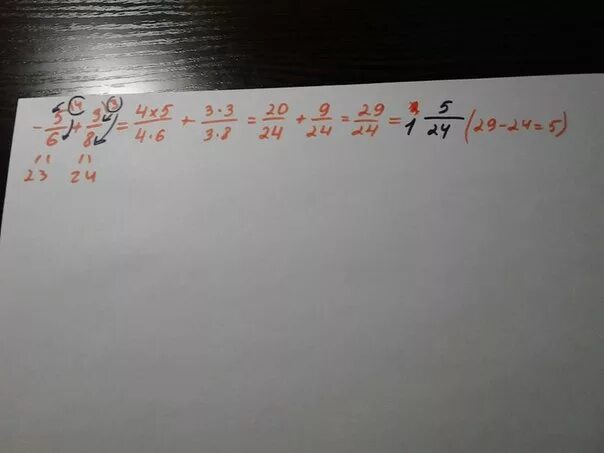 - 5/6 + 3/8 = 4×5/4·6 + 3·3/3·8 = 20/24 + 9/24 = 29/24 = 1 5/24 (29-24=5)
23 24